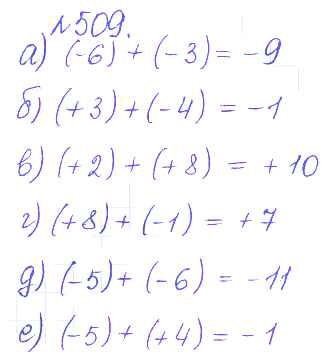 №509.
а) (-6) + (-3) = -9
б) (+3) + (-4) = -1
в) (+2) + (+8) = +10
г) (+8) + (-1) = +7
д) (-5) + (-6) = -11
е) (-5) + (+4) = -1